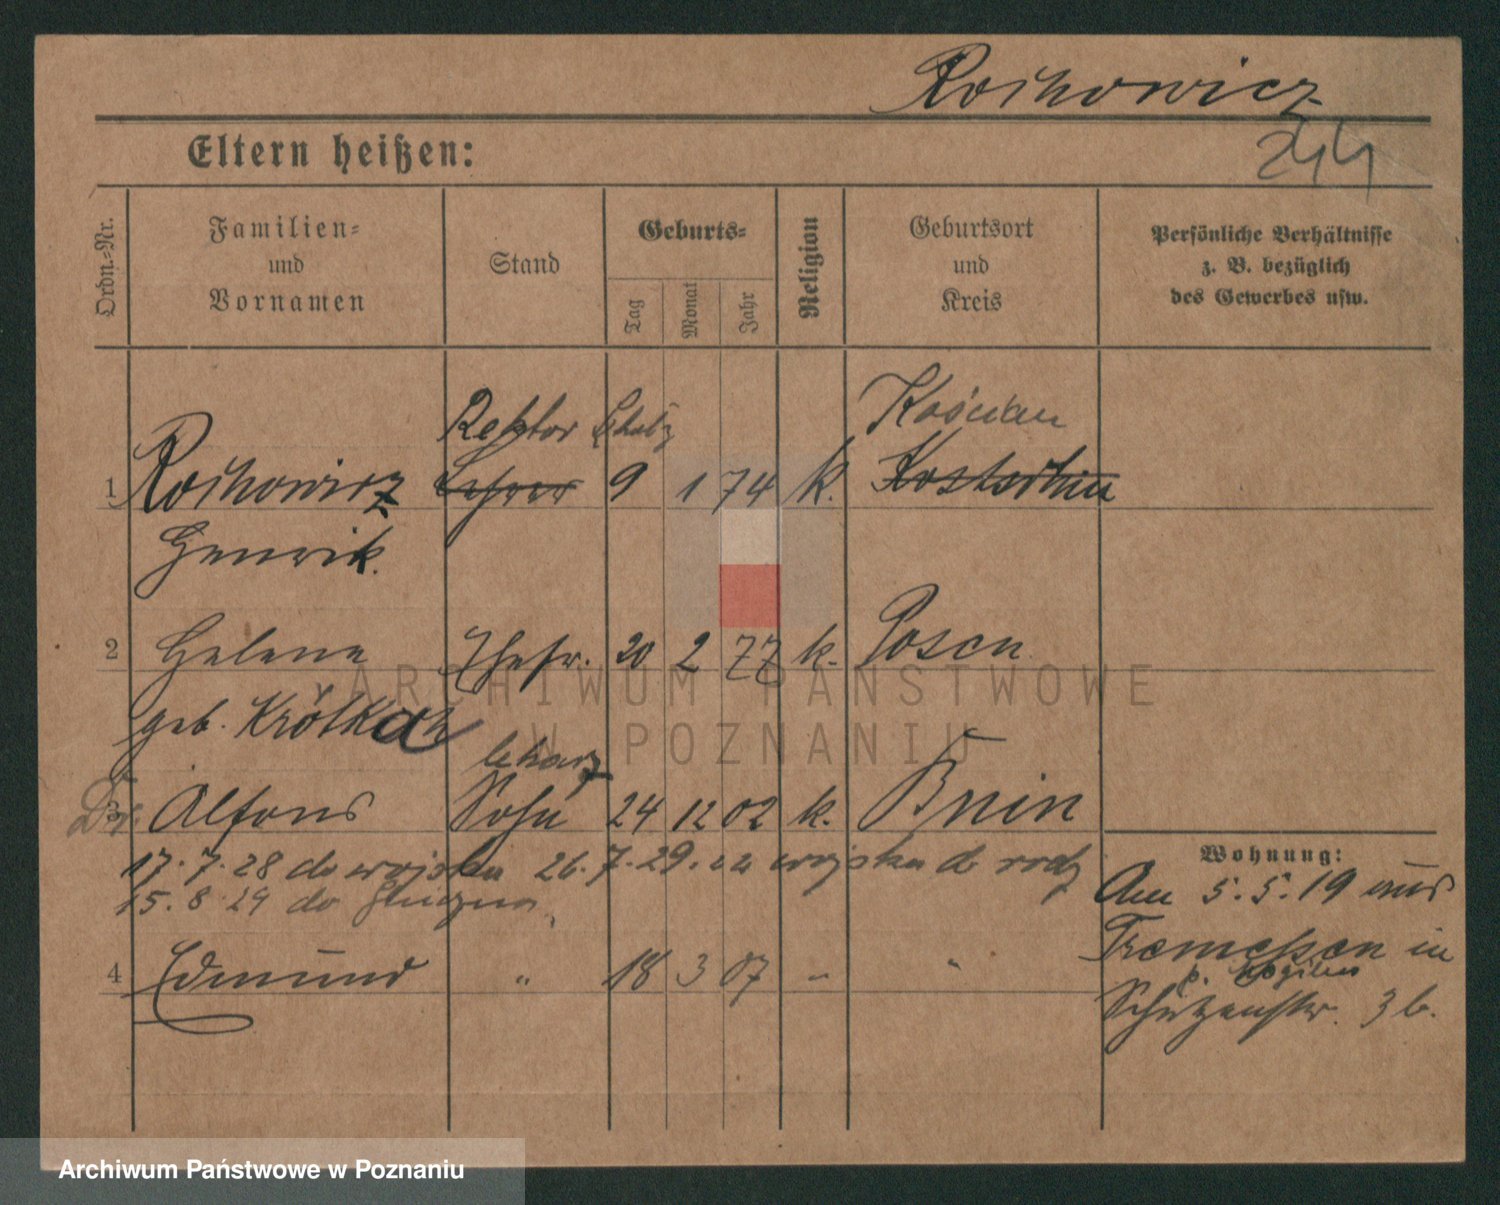 Roihowicz
244
Eltern heißen:
Ordn.-Nr.
Familien-
und
Vornamen
Stand
Geburts-
Tag
Monat
Jahr
Religion
Geburtsort
und
Kreis
Persönliche Verhältnisse
z. B. bezüglich
des Gewerbes usw.
Rektor
Kościan
1 Roihowicz Lehrer 9 1 74 k. Kostschin
Henrik.
2 Helene Ehefr. 20 2 77 k. Posen
geb.
lekarz
Dr. 3 Alfons Sohn 24 12 02 k. Bnin
17.7.28 do wojska 26.7.29. z wojska do
15.8.29 do
4 Edmund " 18 3 07 " "
Wohnung:
Am 5.5.19 aus
Tremessen in
Schützenstr. 3b.
ARCHIWUM PAŃSTWOWE
W POZNANIU
Archiwum Państwowe w Poznaniu